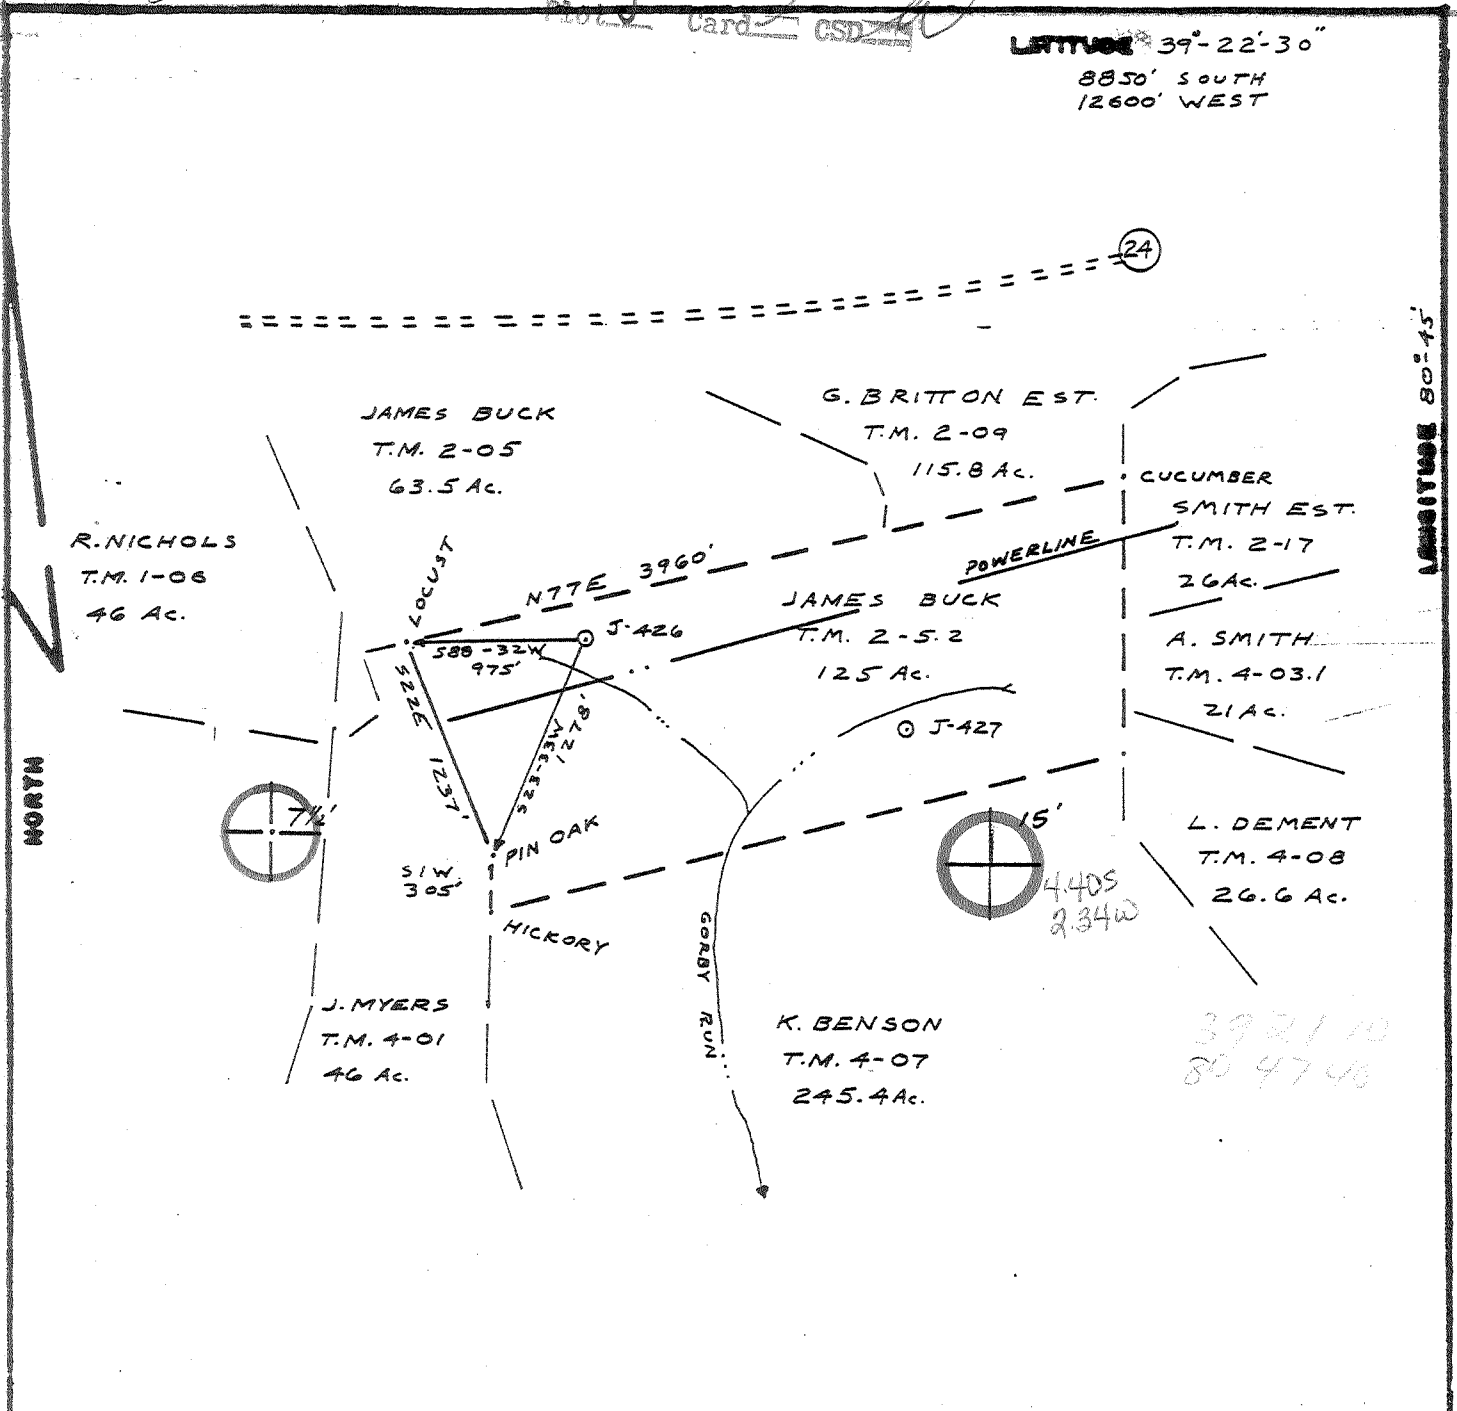 Plot Card CSD
LATITUDE 39°-22'-30"
8850' SOUTH
12600' WEST
24
LONGITUDE 80°-45'
JAMES BUCK
T.M. 2-05
63.5 Ac.
G. BRITTON EST.
T.M. 2-09
115.8 Ac.
CUCUMBER
SMITH EST.
T.M. 2-17
26 Ac.
POWERLINE
R. NICHOLS
T.M. 1-06
46 Ac.
LOCUST
N77E 3960'
J-426
S88-32W
975'
JAMES BUCK
T.M. 2-5.2
125 Ac.
A. SMITH
T.M. 4-03.1
21 Ac.
S22E 1237'
S23-33W
1278'
J-427
NORTH
7½'
15'
PIN OAK
S1W
305'
HICKORY
L. DEMENT
T.M. 4-08
26.6 Ac.
4.40S
2.34W
GORBY RUN
J. MYERS
T.M. 4-01
46 Ac.
K. BENSON
T.M. 4-07
245.4 Ac.
39 21 10
80 47 40